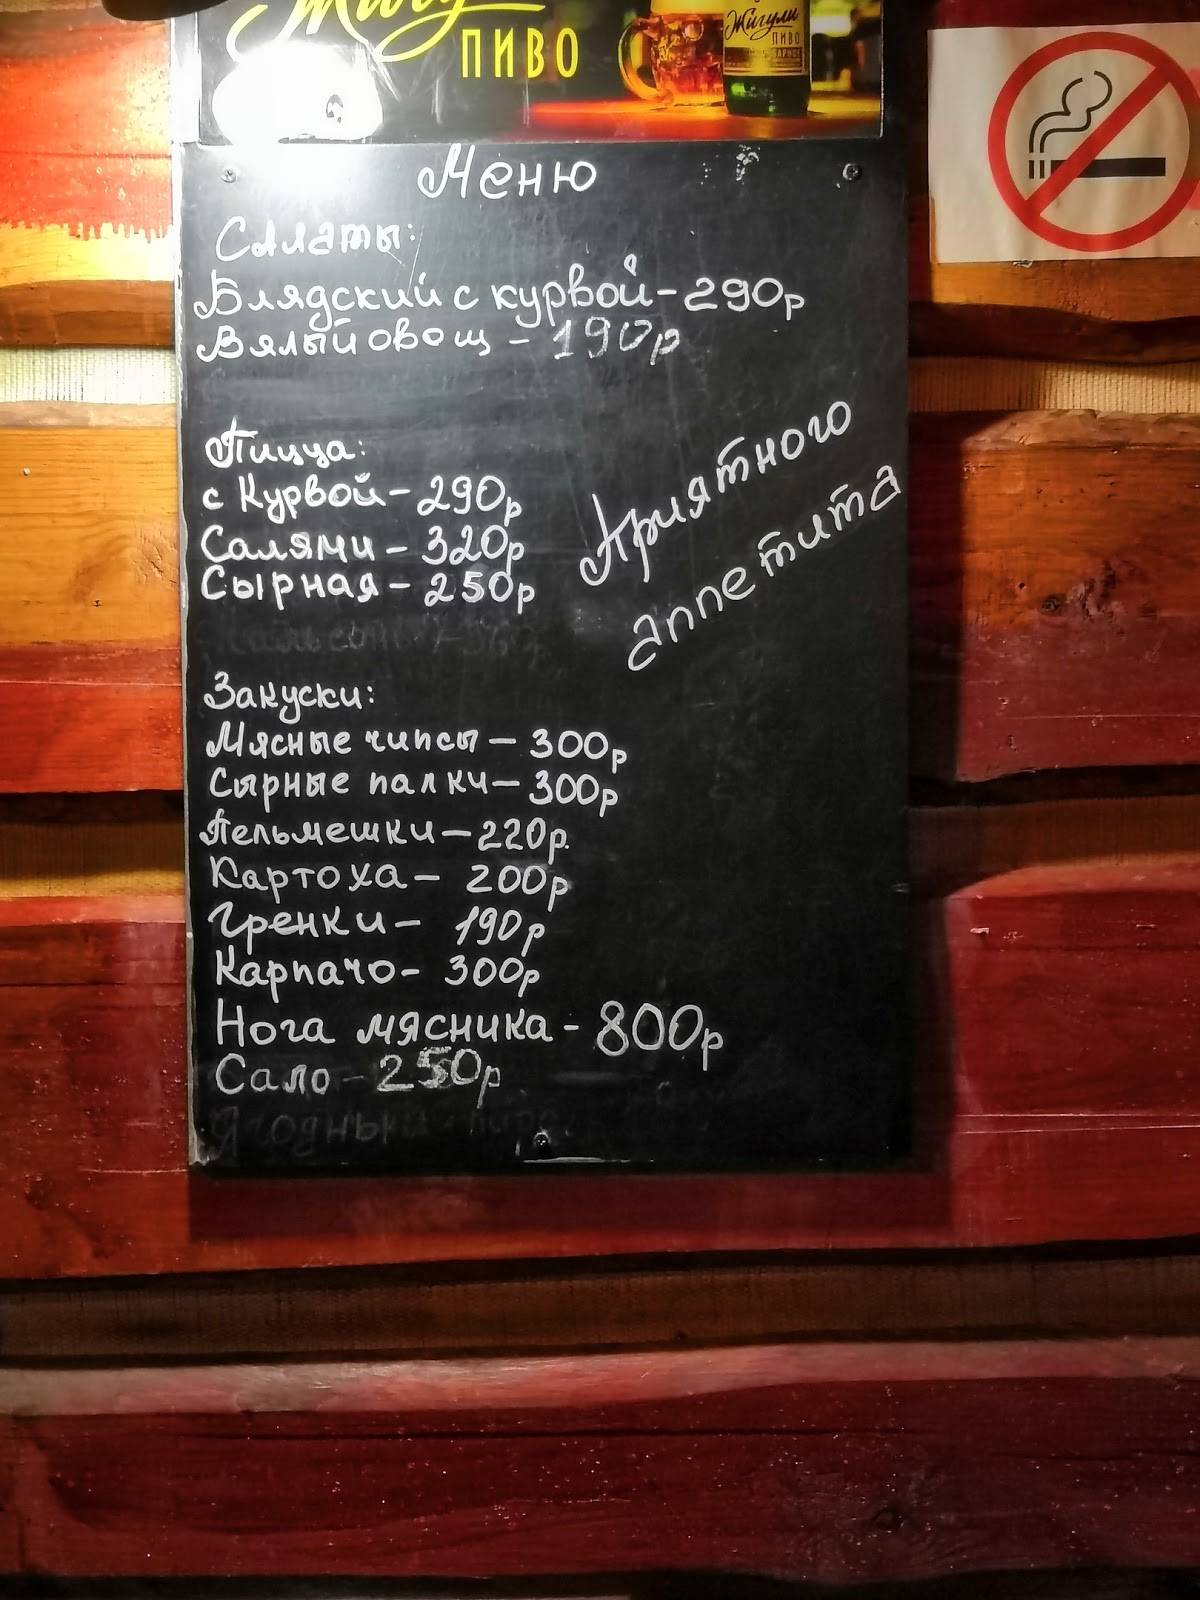 ПИВО
Жигули
ПИВО
Меню
Салаты:
Блядский с курвой - 290р
Вялый овощ - 190р
Пицца:
с Курвой - 290р
Салями - 320р
Сырная - 250р
Приятного
аппетита
Закуски:
Мясные чипсы - 300р
Сырные палки - 300р
Пельмешки - 220р.
Картоха - 200р
Гренки - 190р
Карпачо - 300р
Нога мясника - 800р
Сало - 250р
Ягодный